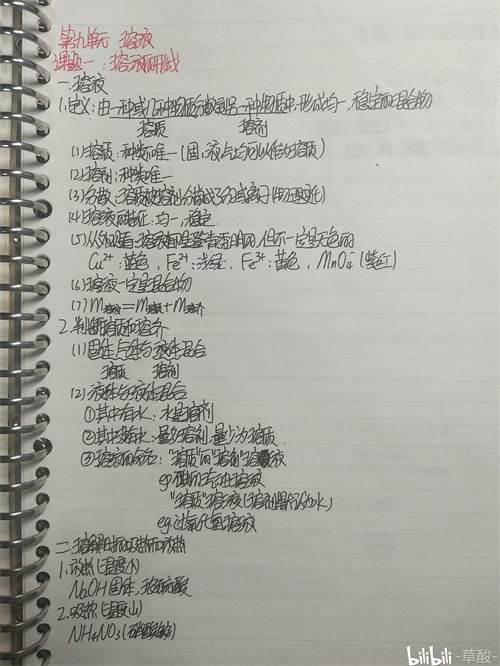 第九单元 溶液
课题一:溶液的形成
一.溶液
1.定义:由一种或几种物质分散到另一种物质中,形成均一、稳定的混合物
溶质 溶剂
(1)溶质:种类不唯一(固、液、气均可以作溶质)
(2)溶剂:种类唯一
(3)分散:溶质被溶剂分散成了分子或离子(物理变化)
(4)溶液的特征:均一,稳定
(5)从外观看:溶液都是澄清透明的,但不一定是无色的
Cu²⁺:蓝色,Fe²⁺:浅绿,Fe³⁺:黄色,MnO₄(紫红)
(6)溶液一定是混合物
(7)m溶液=m溶质+m溶剂
2.判断溶质和溶剂
(1)固体、气体与液体混合
溶质 溶剂
(2)液体与液体混合
①其中有水:水是溶剂
②其中没有水:量多为溶剂,量少为溶质.
③溶液的命名:"溶质"的"溶剂"溶液
eg.碘的汽油溶液
"溶质"溶液(溶剂默认为水)
eg.过氧化氢溶液
二.溶解时的吸热和放热
1.放热(温度↑)
NaOH固体,浓硫酸
2.吸热(温度↓)
NH₄NO₃(硝酸铵)
bilibili -草酸-